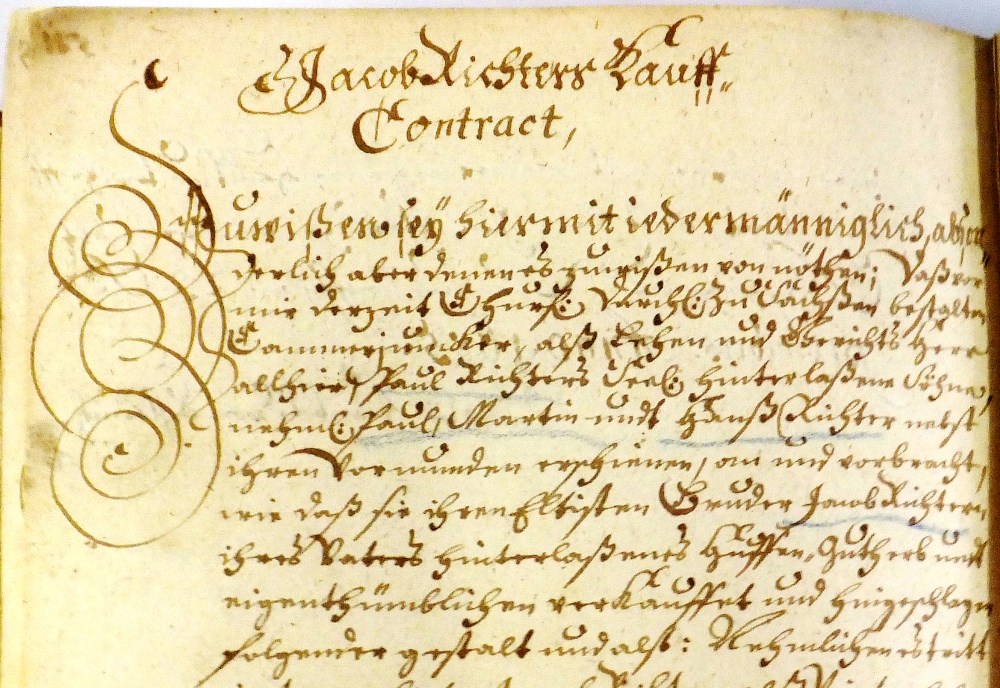 Jacob Richters Kauff-
Contract,
Zuwißen sey hiermit iedermänniglich, abson-
derlich aber denen es zuwißen von nöthen; Daß vor
mir derzeit Churf: Durchl: zu Sachßen bestalten
Cammerjuncker, alß Lehen und Gerichts Herr
allhier, Paul Richters Seel: hinterlaßene Söhne,
nehml: Paul, Martin undt Hanß Richter nebst
ihren Vormunden erschienen, an und vorbracht,
wie daß sie ihren Eltisten Bruder Jacob Richtern
ihres Vaters hinterlaßenes Huffen-Guth erb undt
eigenthümblichen verkauffet und hingeschlagen
folgender gestalt und alß: Nehmlichen es tritt